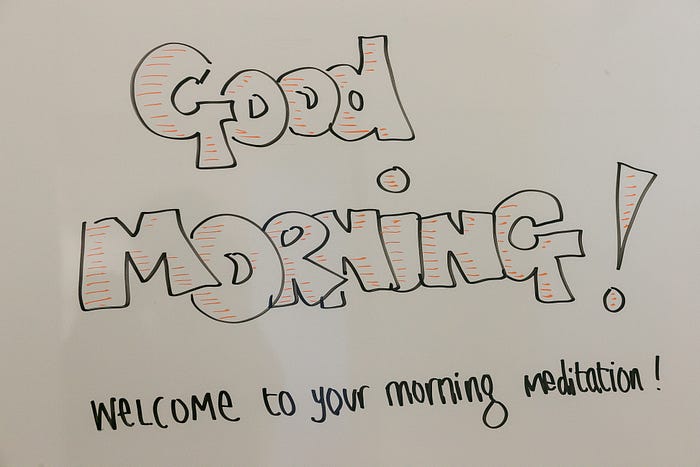 Good
MORNiNG!
WELCOME to your morning meditation!